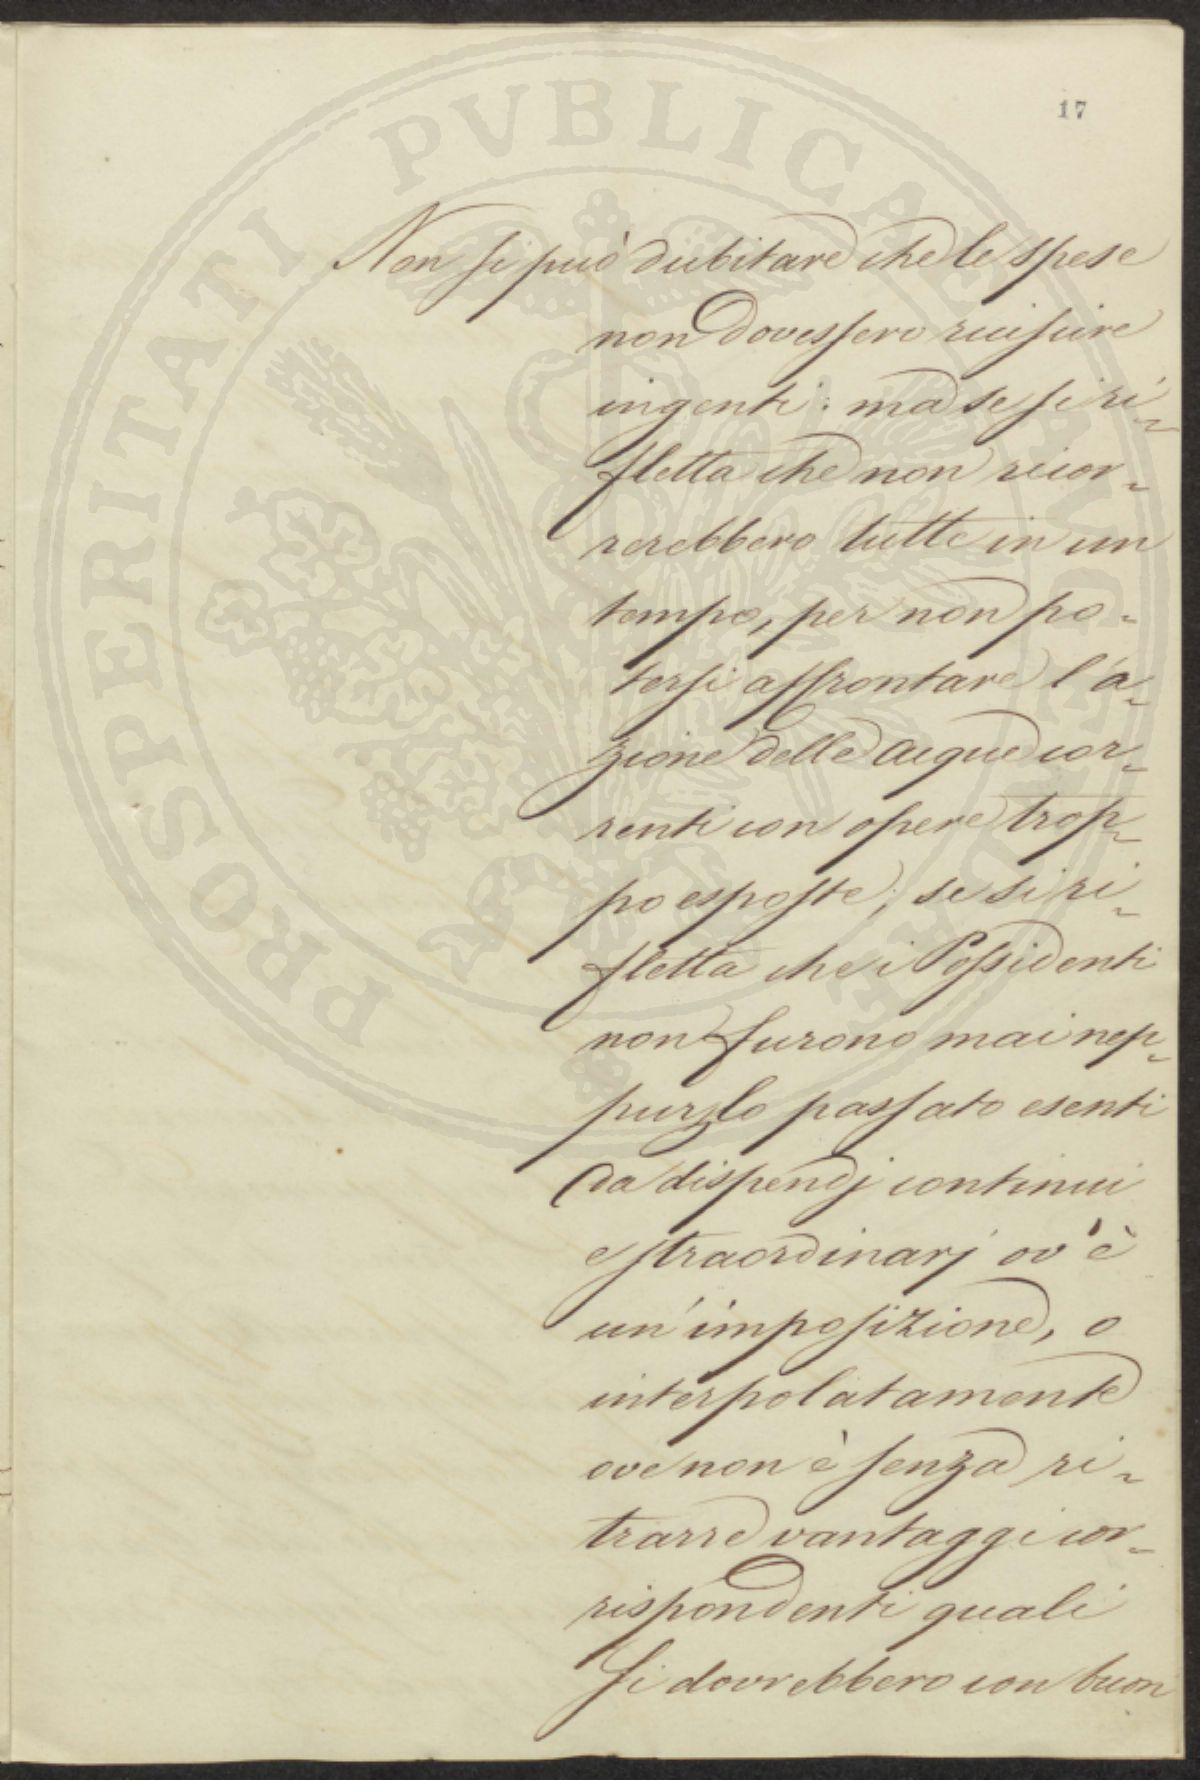 PROSPERITATI PVBLICAE AVGENDAE
17
Non si può dubitare che le spese
non dovessero riuscire
ingenti: ma se si ri-
fletta che non ricor-
rerebbero tutte in un
tempo, per non po-
tersi affrontare l'a-
zione delle acque cor-
renti con opere trop-
po esposte; se si ri-
fletta che i Possidenti
non furono mai nep-
pur lo passato esenti
da dispendj continui
e straordinarj ov'è
un'imposizione, o
interpolatamente
ove non è senza ri-
trarre vantaggi cor-
rispondenti quali
si dovrebbero con buon